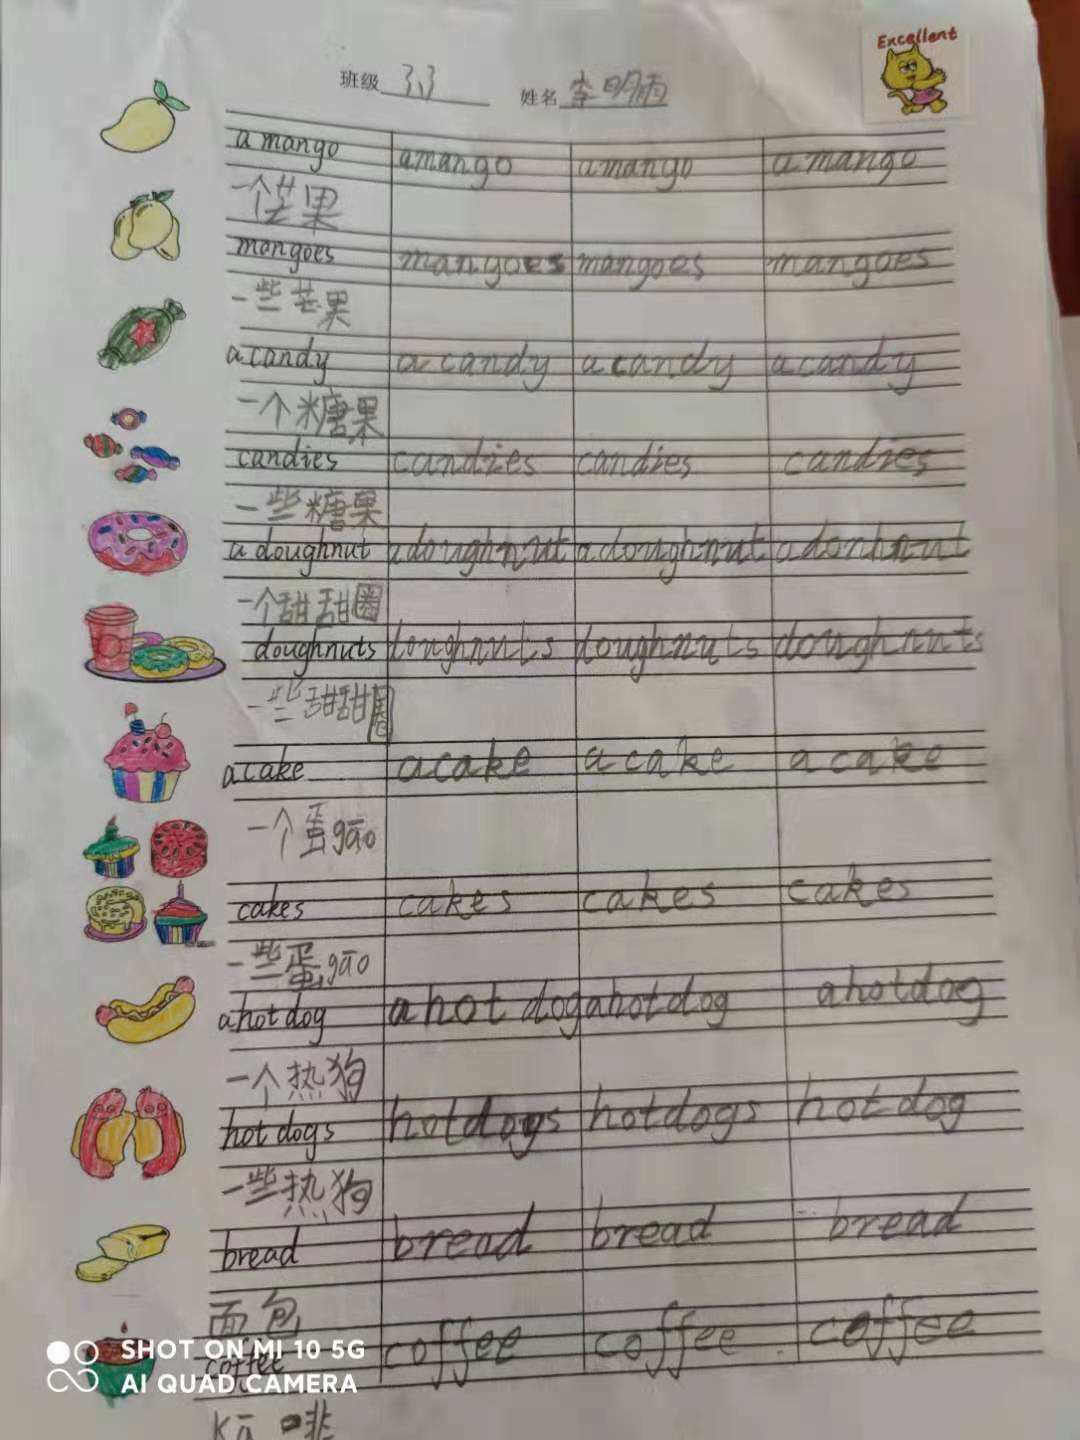 Excellent
班级 3.3 姓名 李明雨
a mango a mango a mango a mango
一个芒果
mangoes mangoes mangoes mangoes
一些芒果
a candy a candy a candy a candy
一个糖果
candies candies candies candies
一些糖果
a doughnut a doughnut a doughnut
一个甜甜圈
doughnuts doughnuts doughnuts doughnuts
一些甜甜圈
a cake a cake a cake a cake
一个蛋gāo
cakes cakes cakes cakes
一些蛋gāo
a hot dog a hot dog a hot dog a hot dog
一个热狗
hot dogs hot dogs hot dogs hot dog
一些热狗
bread bread bread bread
面包
coffee coffee coffee coffee
SHOT ON MI 10 5G
AI QUAD CAMERA
kā 啡